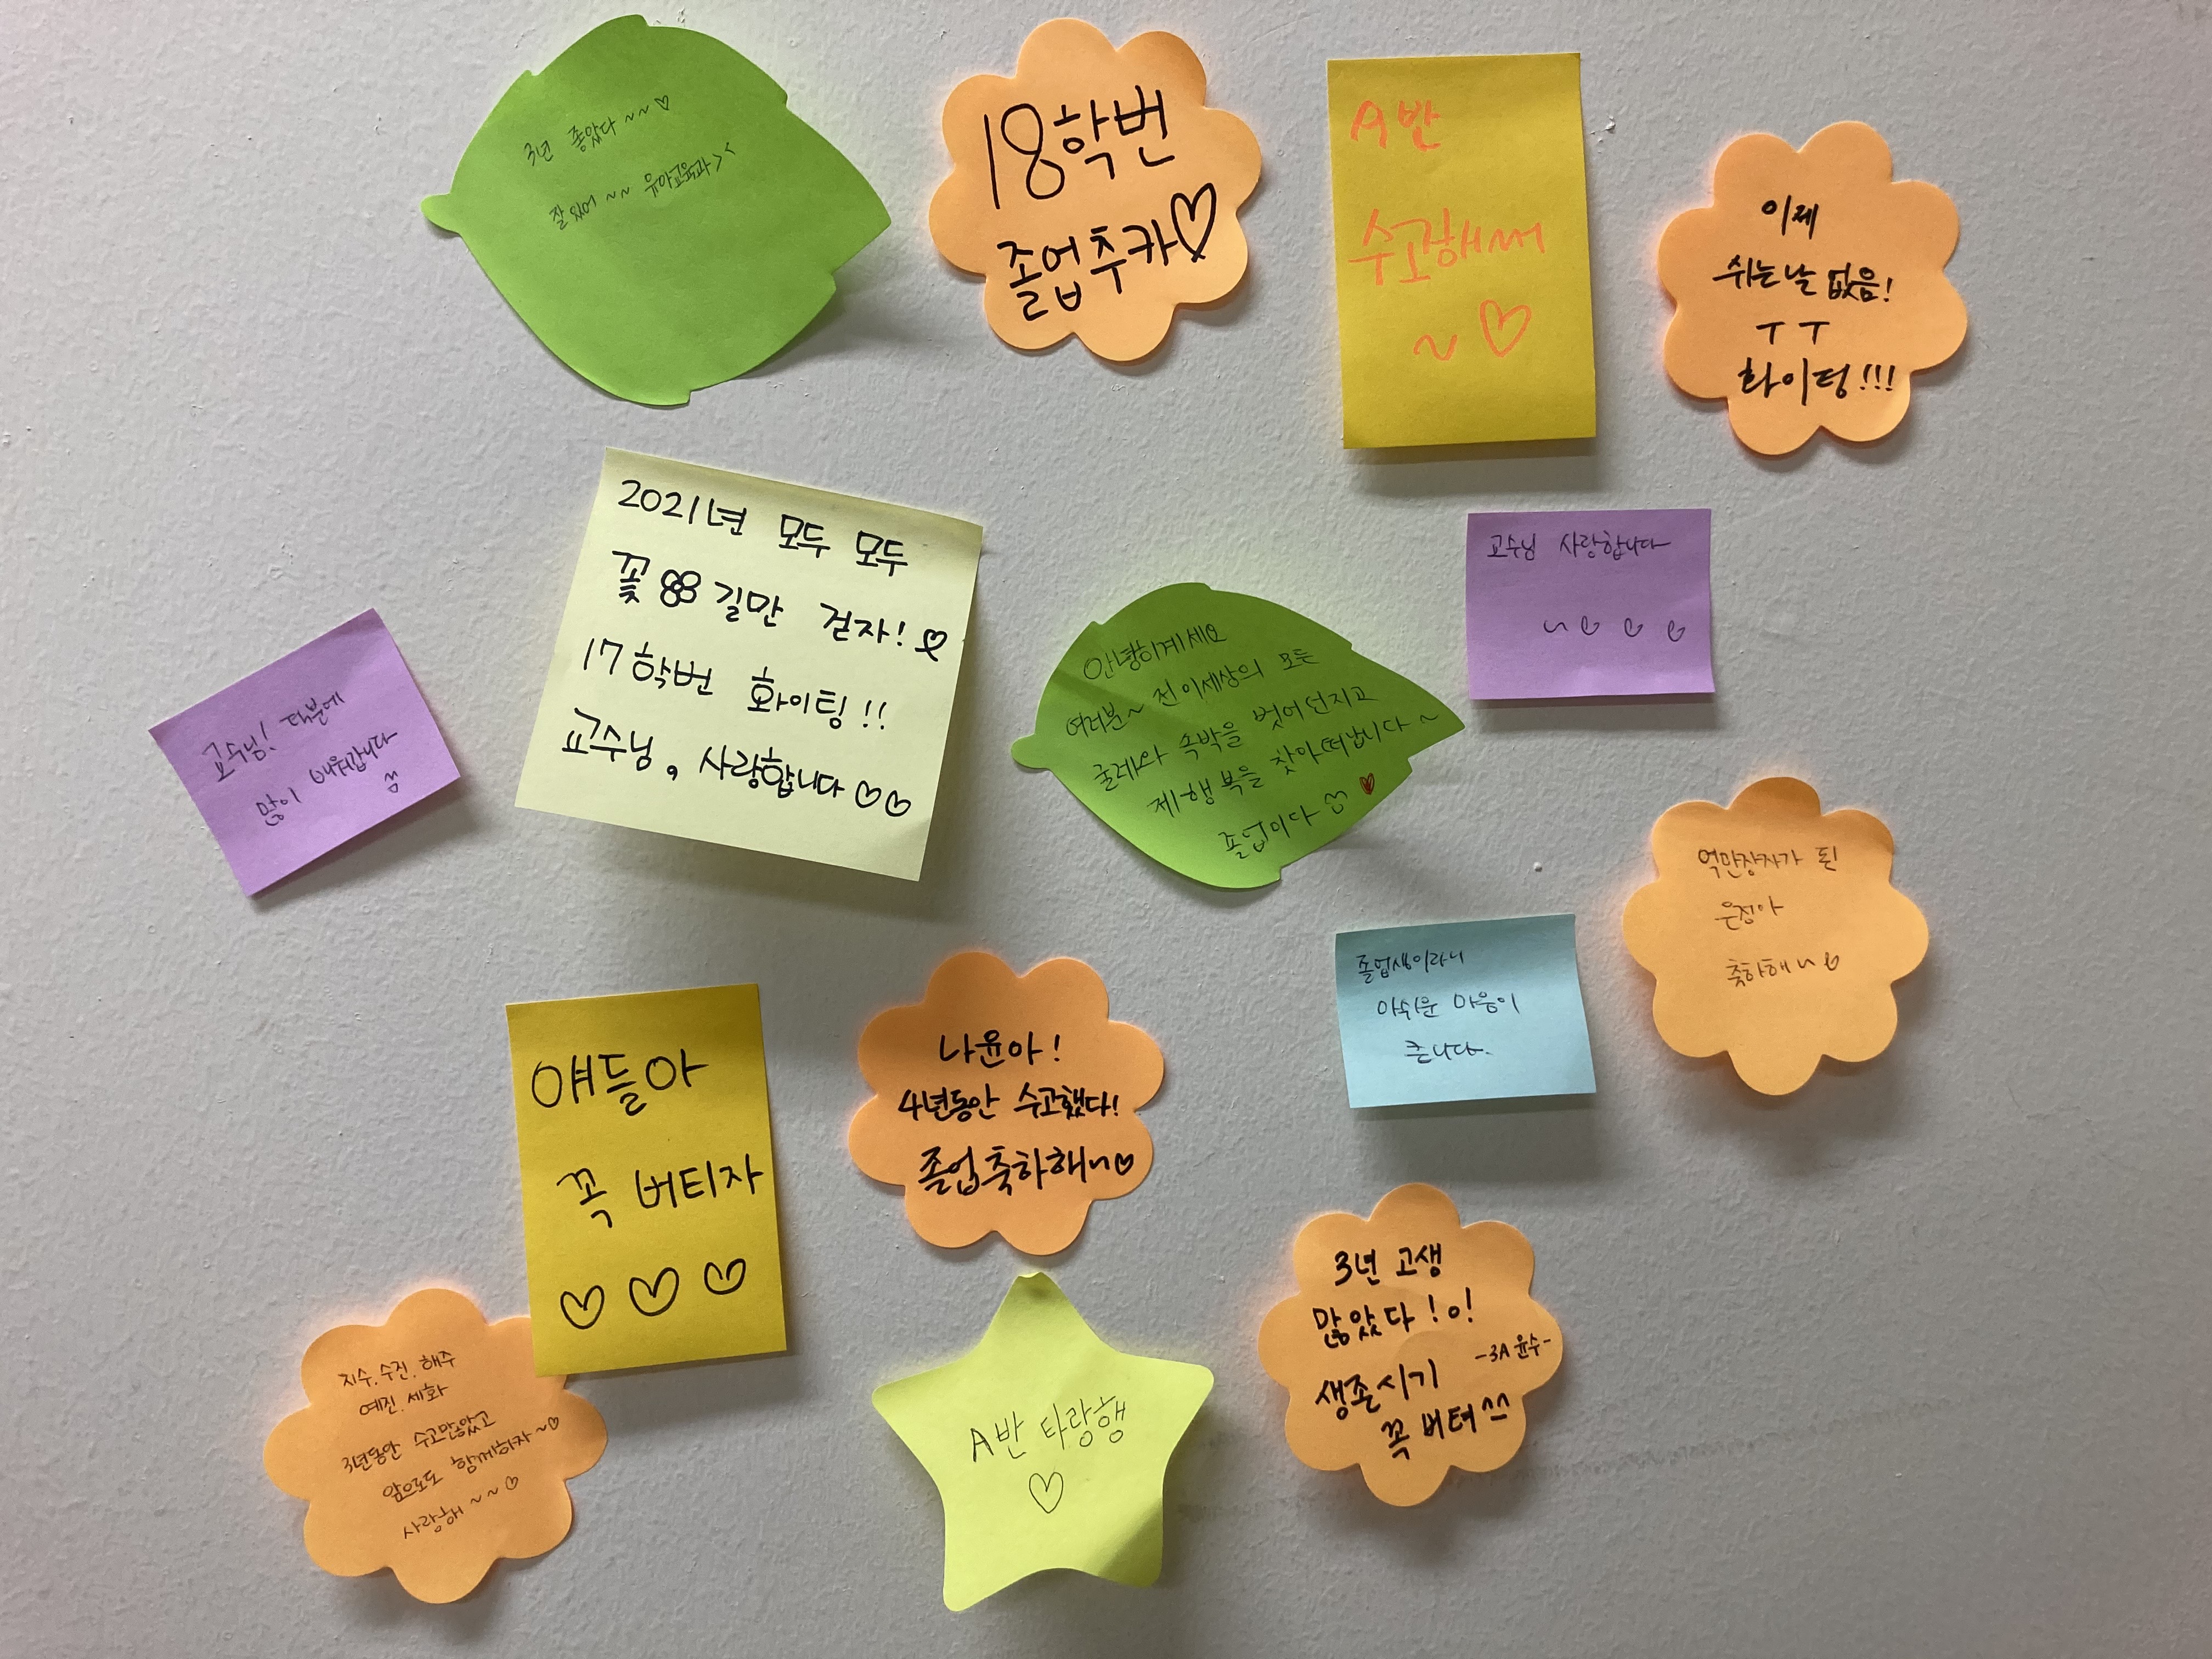 3년 좋았다 ~~♡
잘있어 ~~ 유아교육과><
18학번
졸업추카♡
A반
수고해써
~♡
이제
쉬는날 없음!
ㅜㅜ
화이팅!!!
2021년 모두 모두
꽃 길만 걷자!♡
17학번 화이팅!!
교수님, 사랑합니다♡♡
교수님 사랑합니다
~♡♡♡
교수님! 덕분에
많이 배워갑니다
^^
안녕히계세요
여러분~ 전 이세상의 모든
굴레와 속박을 벗어 던지고
제 행복을 찾아 떠납니다~
졸업이다 ♡♥
억만장자가 된
은정아
축하해~♡
졸업생이라니
아쉬운 마음이
큽니다.
얘들아
꼭 버티자
♡♡♡
나윤아!
4년동안 수고했다!
졸업축하해~♡
지수.수진.해주
예진.세화
3년동안 수고많았고
앞으로도 함께하자~♡
사랑해~~♡
A반 타랑행
♡
3년 고생
많았다!o!
-3A 윤수-
생존시기
꼭 버텨^^